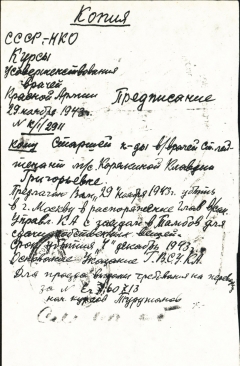 Копия
СССР-НКО
Курсы
усовершенствования
врачей
Красной Армии Предписание
29 ноября 1943г.
N К/1/2911
Кому Старшей к-ды в/врачей Ст. лей-
тенант м/с Корякиной Клавдии
Григорьевне.
Предлагаю Вам, 29 ноября 1943г. убыть
в г. Москву в распоряжение Глав.
Управл. К.А с заездом в Тамбов для
вещей.
Срок убытия "4" декабрь 1943г.
Основание: Указание Г.В.С.У.К.А.
Для проезда выданы требования на перевозку
за N
нач курсов